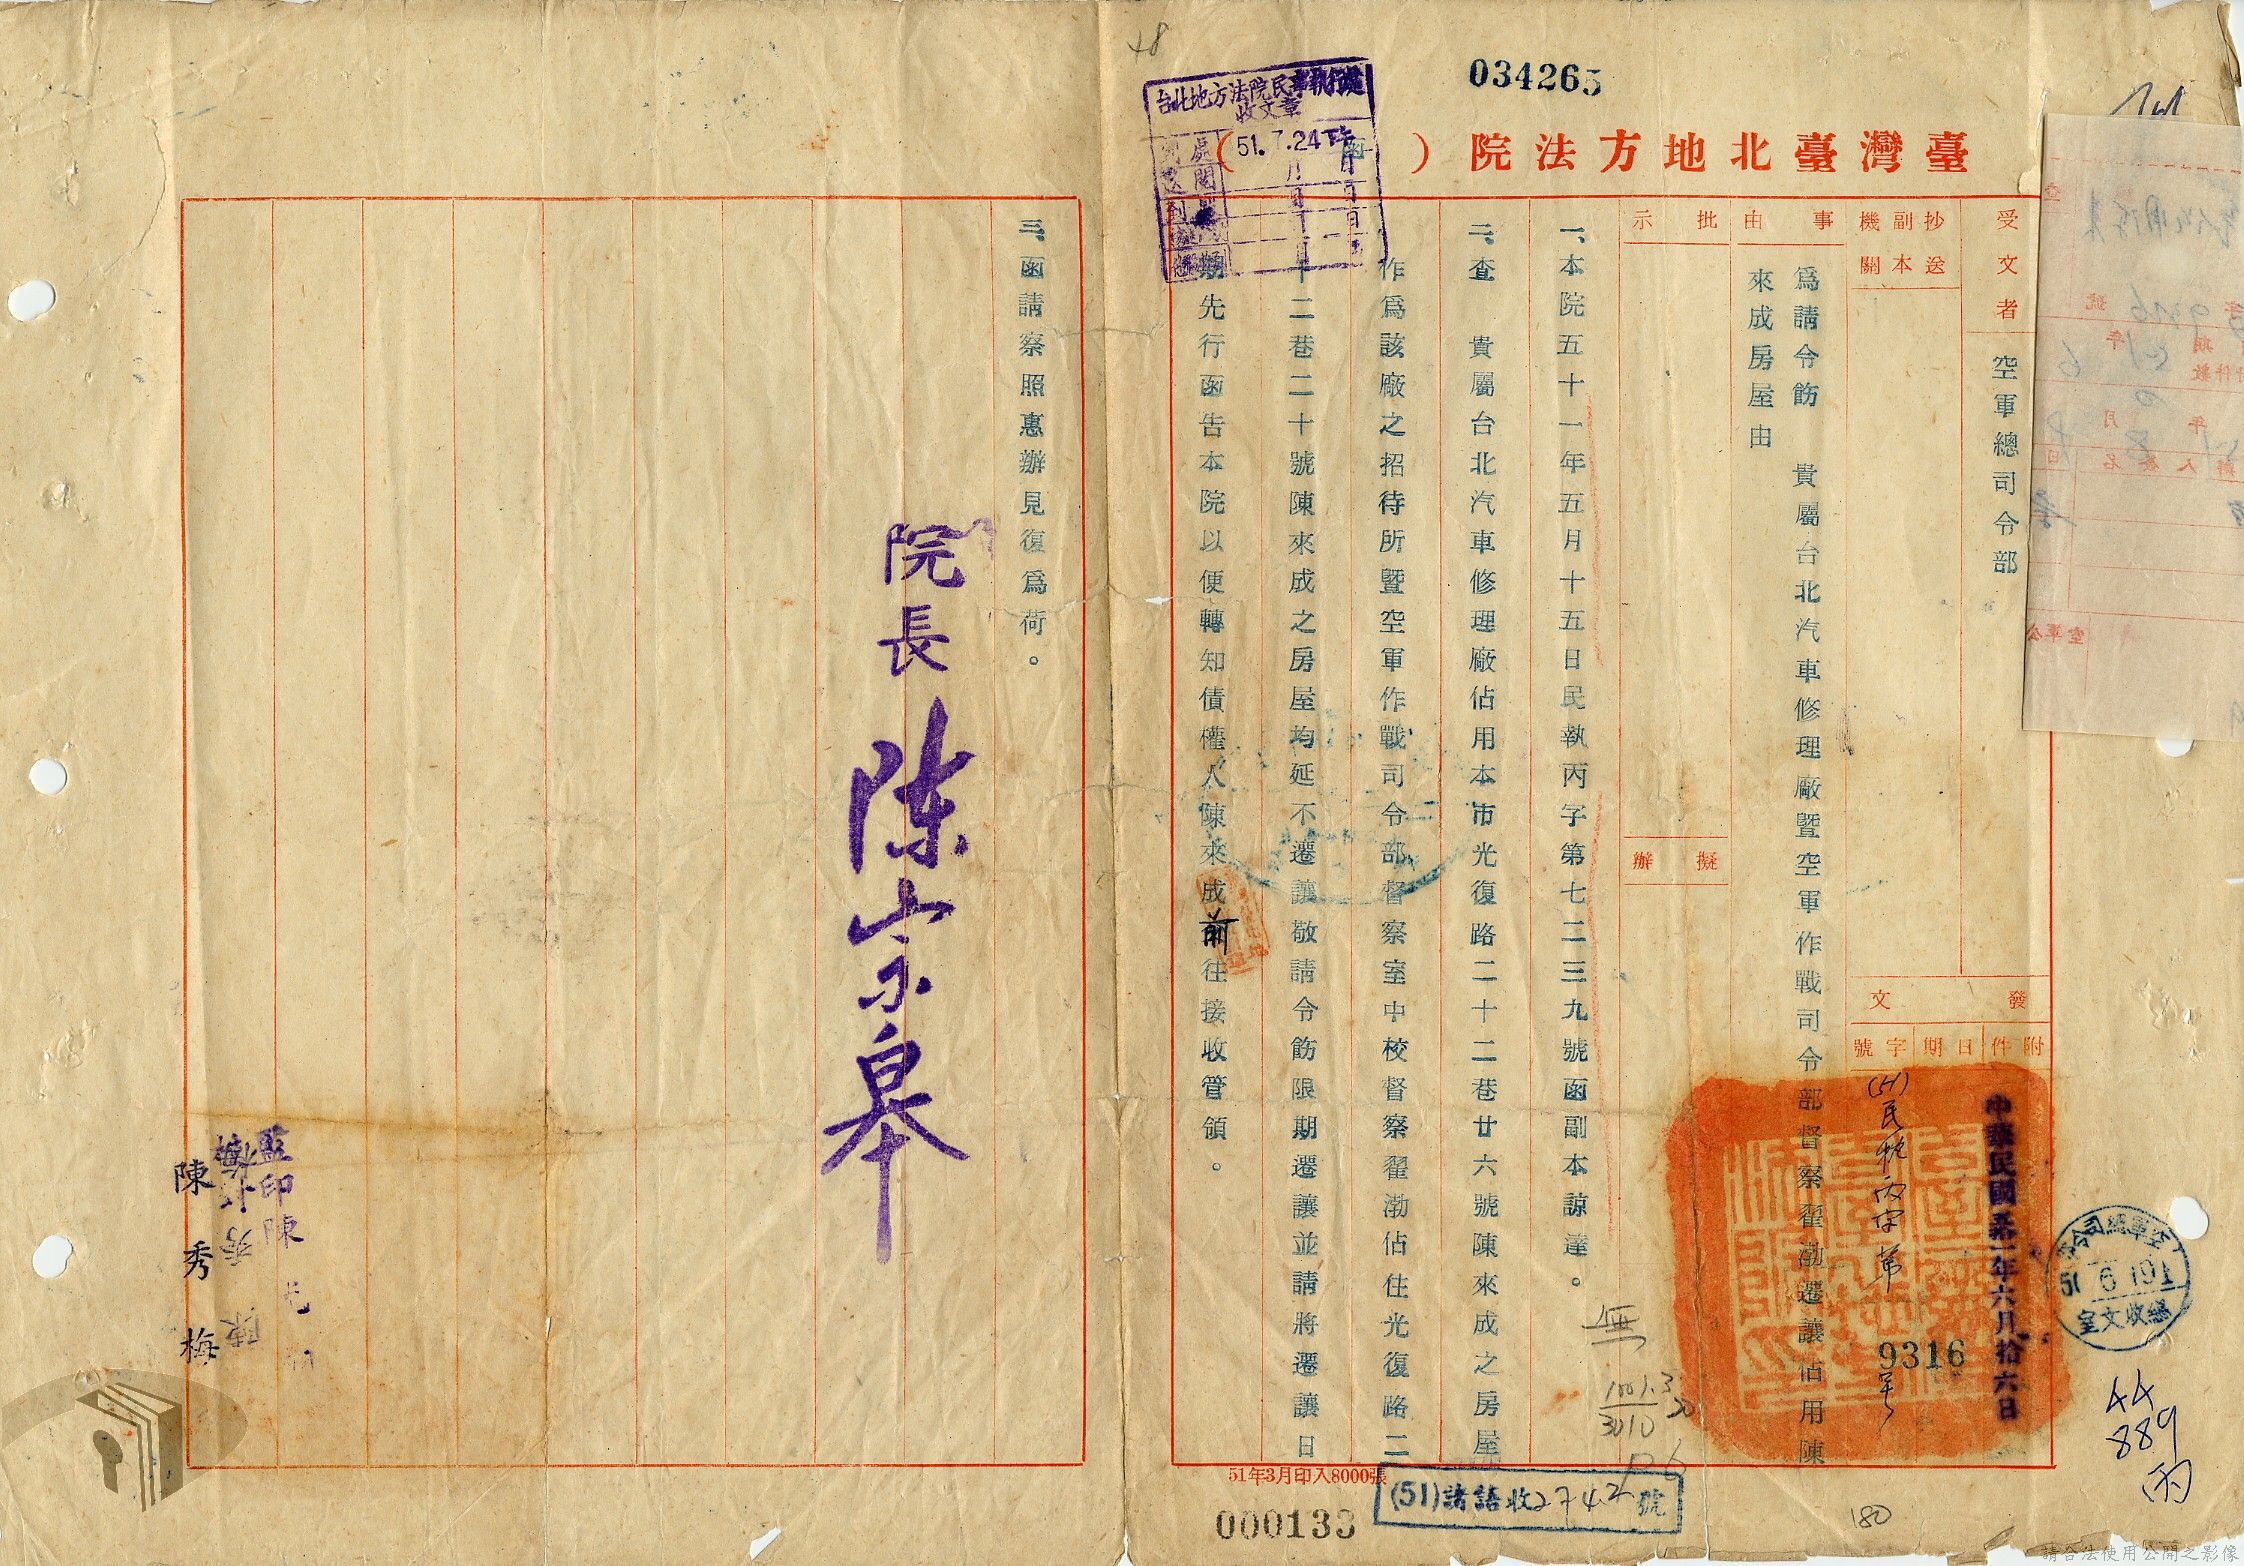 034265
48
臺灣臺北地方法院（函）
台北地方法院民事執行處
收文章
51.7.24
受文者
空軍總司令部
抄送副本機關
事由
為請令飭　貴屬台北汽車修理廠暨空軍作戰司令部督察翟渤遷讓佔用陳
來成房屋由
批示
擬辦
發文
附件
日期
字號
中華民國五十一年六月拾六日
(51)民執丙字第
9316
號
一、本院五十一年五月十五日民執丙字第七二三九號函副本諒達。
二、查　貴屬台北汽車修理廠佔用本市光復路二十二巷廿六號陳來成之房屋
作為該廠之招待所暨空軍作戰司令部督察室中校督察翟渤佔住光復路二
十二巷二十號陳來成之房屋均延不遷讓敬請令飭限期遷讓並請將遷讓日
期先行函告本院以便轉知債權人陳來成前往接收管領。
三、函請察照惠辦見復為荷。
院長 陳宗皋
監印陳
陳秀梅
空軍總司令部
51 6 19
總收文室
無
44
889
丙
180
51年3月印入8000張
(51)諸語收2742號
000133
請合法使用公開之影像